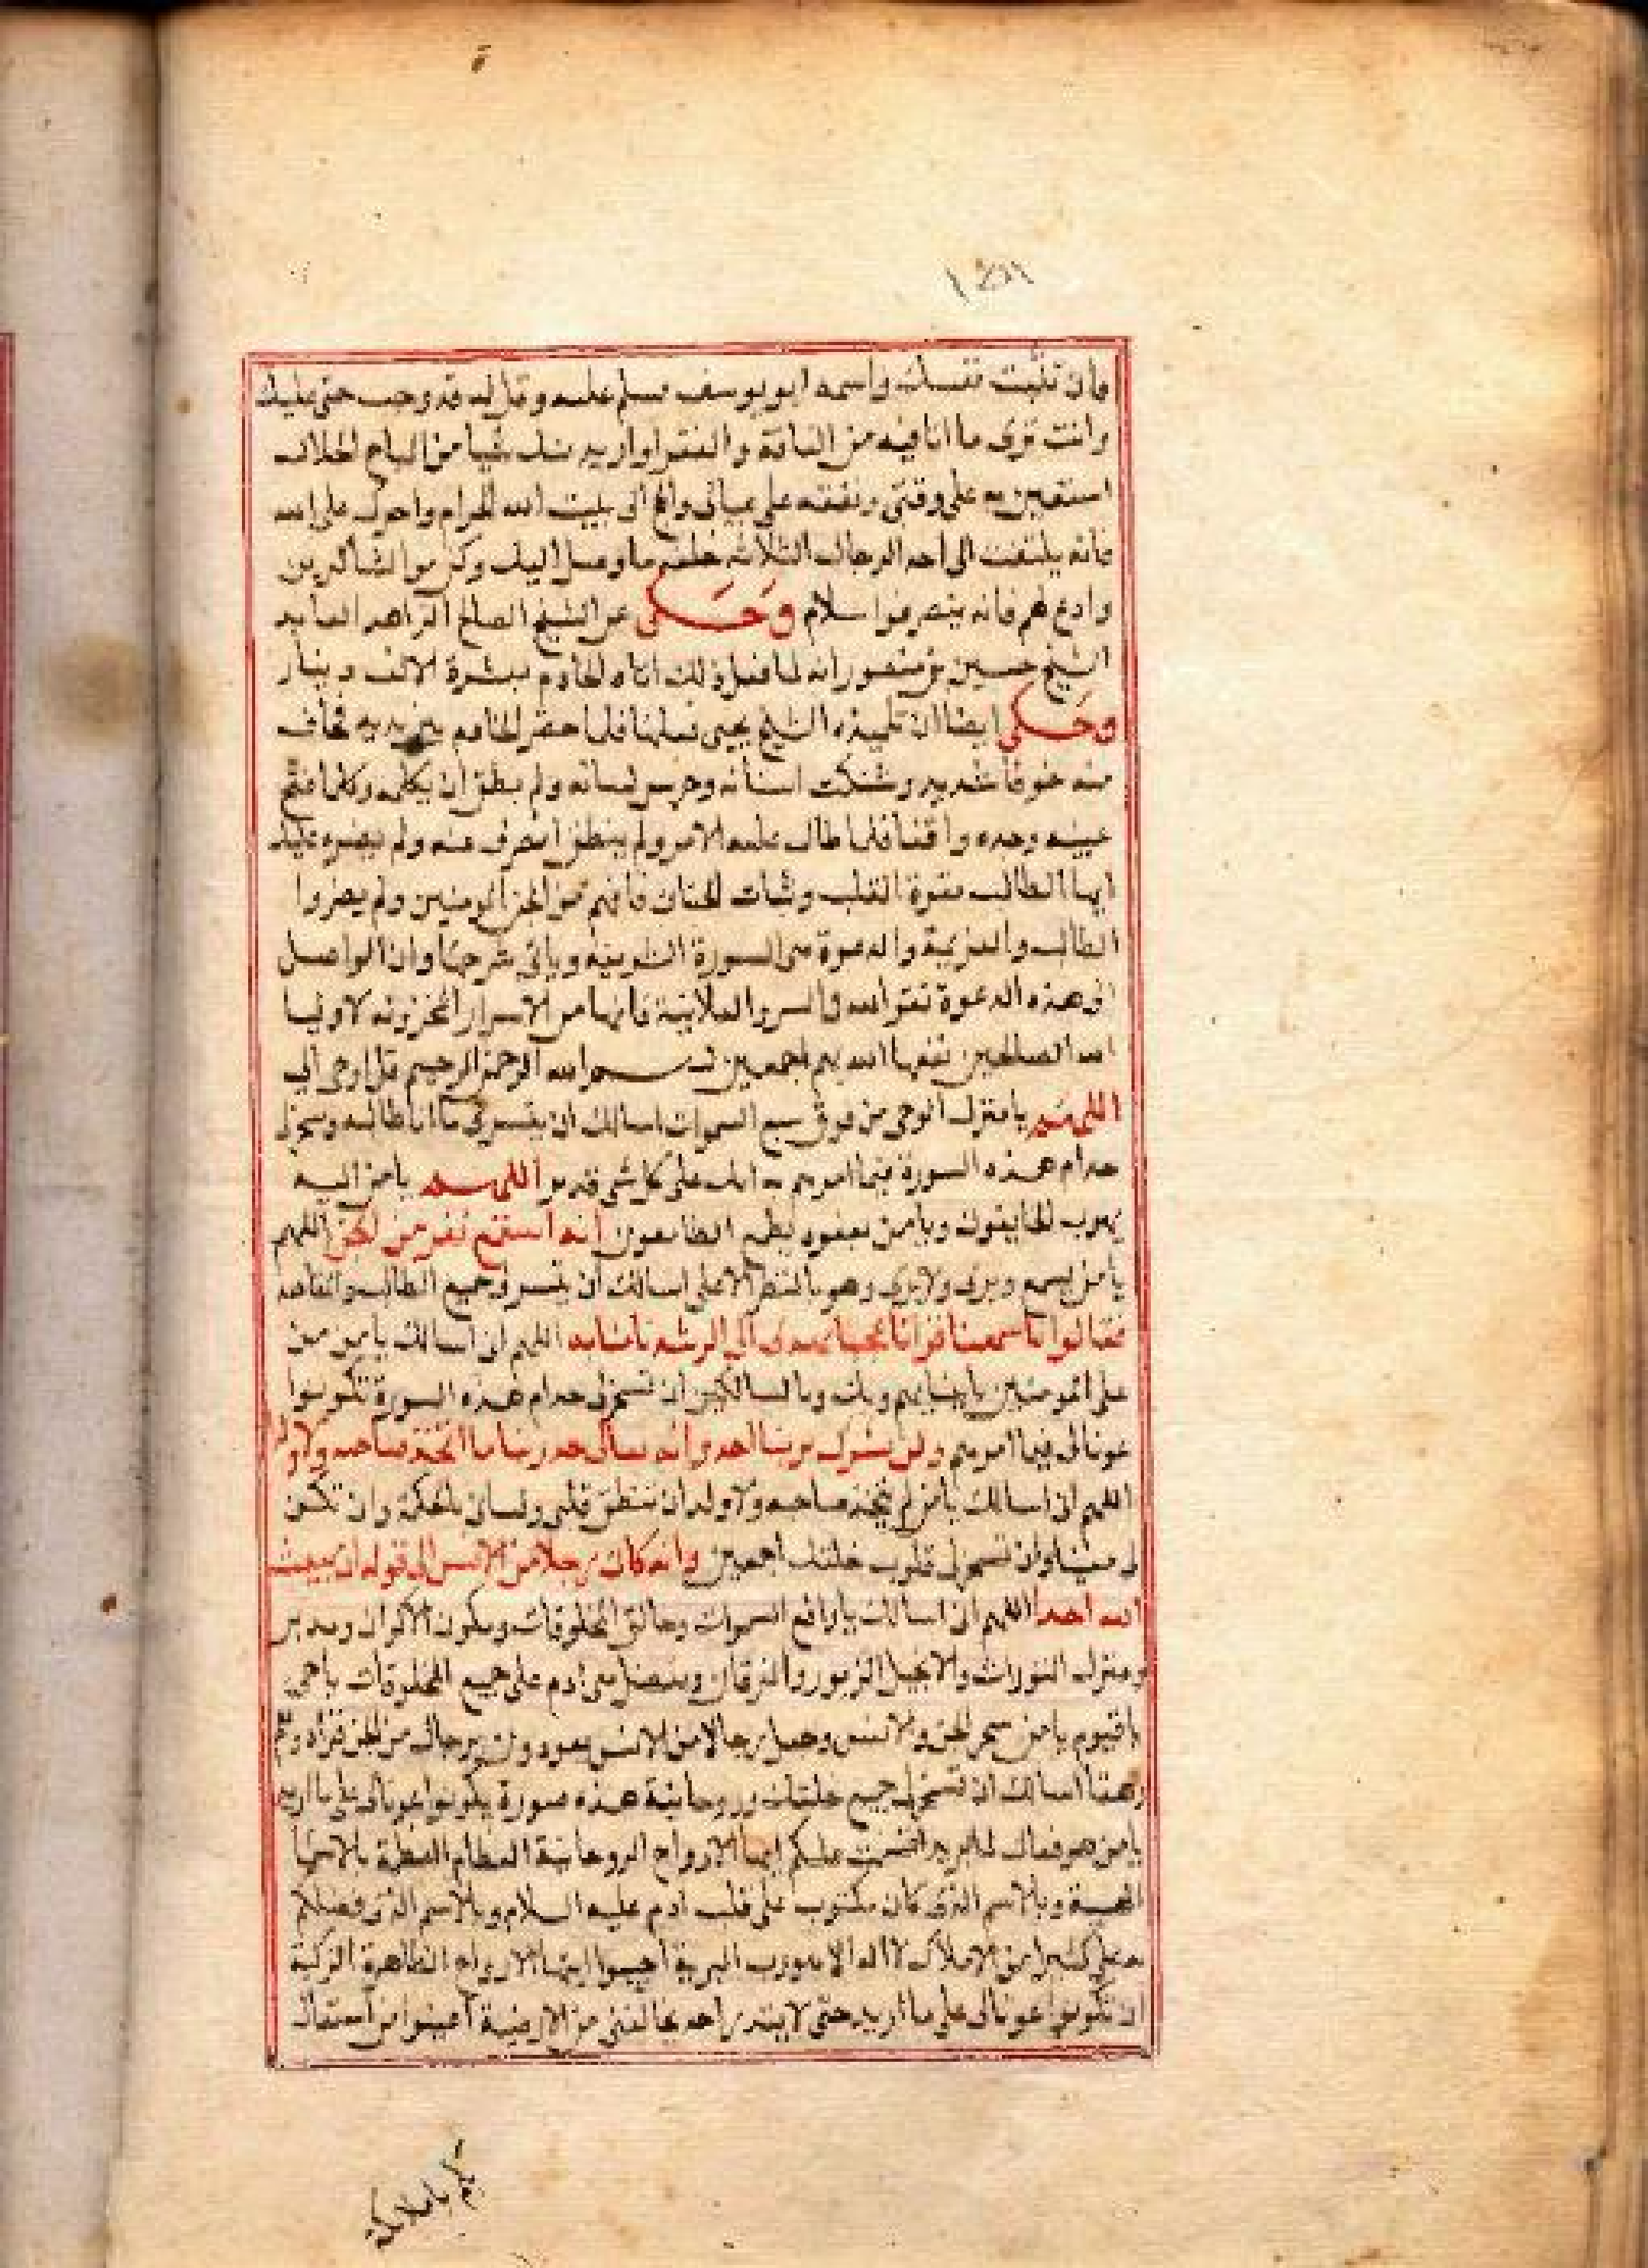 وان تثبت نفسك واسمه ابو يوسف فسلم عليه وقل له قد وجب حقي عليك
وانت ترى ما انا فيه من الفاقة والفقر اواريد منك شيا من المباح الحلال
استعين به على وقتى ونفقته على عيالى والحج الى بيت الله الحرام واحول على الله
فانه يلتفت الى احد الرجال الثلاثه
وادع لهم فانه ينصرفوا سلام وحكى عن الشيخ الصالح الزاهد العابد
الشيخ حسين بن منصور انه لما فعل ذلك اتاه الخادم ببشرة الالف دينار
وحكى ايضا ان تلميذه الشيخ يحيى فعلها فلما حضر الخادم بين يديه خاف
منه خوفا شديد وشكت اسنانه وخرس لسانه ولم يطق ان يكلمه وكلما فتح
عينيه وجده واقفا فلما طال عليه الامر ولم ينطق انصرف عنه ولم يضره عليك
ايها الطالب بقوة القلب وثبات الجنان فانهم من الجن المومنين ولم يضروا
الطالب والعزيمة والدعوة هى السورة الشريفه وياتى شرحها وان الواصل
الى هذه الدعوة تقو الله فى السر والعلانية فانها من الاسرار المخزونه لاوليا
الله الصالحين نفعنا الله بهم اجمعين بسم الله الرحمن الرحيم قل اوحى الي
اللهم يا منزل الوحى من فوق سبع السموات اسالك ان تيسر لى ما انا طالبه وسخر لى
خدام هذه السورة فيما امرهم به انك على كل شى قدير اللهم يا من اليه
يهرب الخايفون ويا من بعفوه يطمع الطامعون انه استمع نفر من الجن اللهم
يا من يسمع ويرى ولا يرى وهو بالمنظر الاعلى اسالك ان تيسر لى جميع المطالب والمقاصد
فقالوا انا سمعنا قرانا عجبا يهدى الى الرشد فامنا به اللهم انى اسالك يا من من
على المومنين بايمانهم وبك وبالسالكين ان تسخر لى خدام هذه السورة تكونوا
عونا لى فيما امرهم ولن نشرك بربنا احد وانه تعالى جد ربنا ما اتخذ صاحبه ولا ولد
اللهم انى اسالك يا من لم يتخذ صاحبه ولا ولد ان تنطق قلبى ولسانى بالحكمة وان تكون
لى معينا وان تسخر لى قلوب خلقك اجمعين وانه كان رجلا من الانس الى قوله ان يبعث
الله احدا اللهم انى اسالك يا رافع السموات وخالق المخلوقات ومكون الاكوان ومدبر
ومنزل التورات والانجيل الزبور والفرقان ومفضل بنى ادم على جميع المخلوقات يا حى
يا قيوم يا من سخر الجن والانس وجعل رجالا من الانس يعودون برجال من الجن فزادوهم
رهقا اسالك ان تسخر لى جميع خلقك وروحانية هذه سورة يكونوا عونا لى على ما اريد
يا من هو فعال لما يريد اقسمت عليكم ايها الارواح الروحانية العظام المطهرة بالاسما
وبالاسم الذى كان مكتوب على قلب ادم عليه السلام وبالاسم الذى فضلكم
به على كثيرا من الاملاك لا اله الا هو رب البرية اجيبوا ايتها الارواح الطاهرة الزكية
ان تكونوا عونا لى على ما اريد حتى لا يقدر احد يخالفنى من الارضية اعينوا من استعان
بكم يا ملايكة